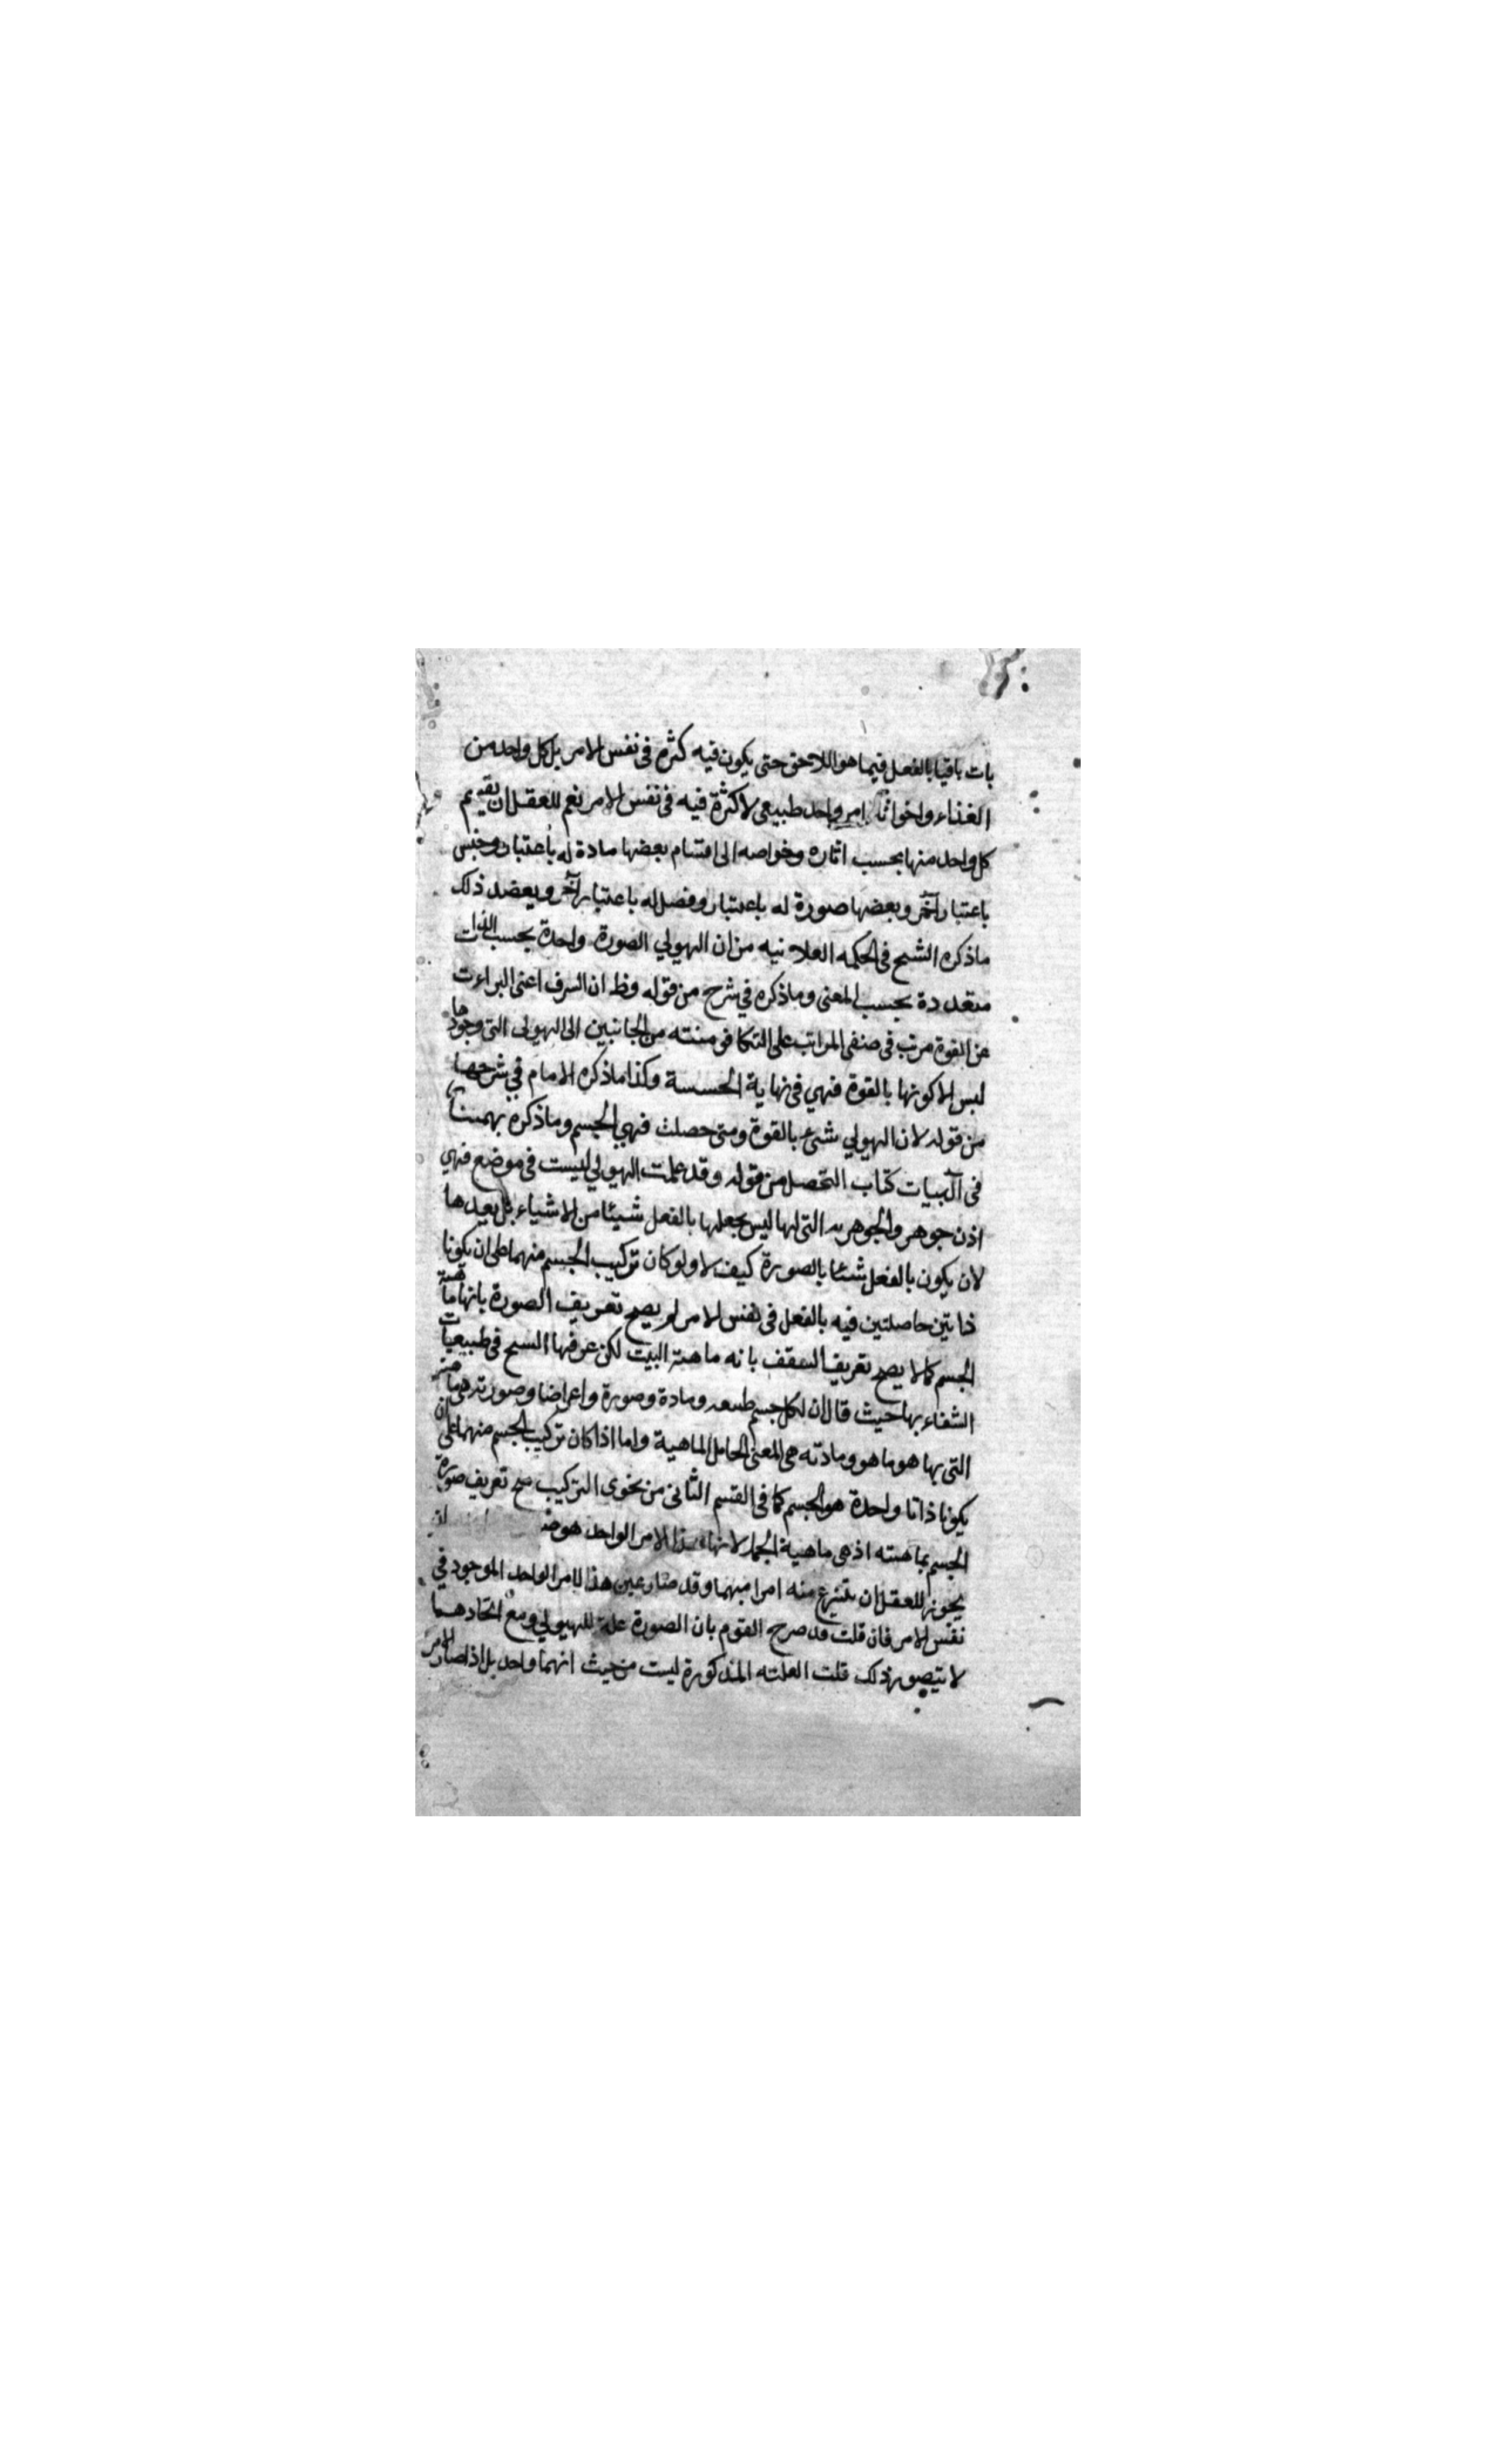 بات باقيا بالفعل فيما هو اللاحق حتى يكون فيه كثرة فى نفس الامر بل كل واحد من
الغذاء واخواتها امر واحد طبيعى لا كثرة فيه فى نفس الامر نعم للعقل ان يقسم
كل واحد منها بحسب اثاره وخواصه الى اقسام بعضها مادة له باعتبار وجنس
باعتبار آخر وبعضها صورة له باعتبار وفصل له باعتبار آخر ويعضد ذلك
ماذكره الشيخ فى الحكمه العلانيه من ان الهيولي الصورة واحدة بحسب الذات
متعددة بحسب المعنى وماذكره في شرح من قوله وظ ان الشرف اعنى البراءت
عن القوة مرتب فى صنفى المراتب على التكافو من الجانبين الى الهيولى التى وجودها
ليس الا كونها بالقوة فهي فى نهاية الخسسة وكذا ماذكره الامام في شرحها
من قوله لان الهيولي شئ بالقوة ومتى حصلت فهي الجسم وماذكره بهمنيار
فى آلهيات كتاب التحصل من قوله وقد علمت الهيولي ليست فى موضع فهي
اذن جوهر والجوهريه التى لها ليس يجعلها بالفعل شيئا من الاشياء بل يعدها
لان يكون بالفعل شئا بالصورة كيف لا ولو كان تركيب الجسم منهما على ان يكونا
ذاتين حاصلتين فيه بالفعل فى نفس الامر لم يصح تعريف الصورة بانها ماهية
الجسم كما لا يصح تعريف السقف بانه ماهية البيت لكن عرفها الشيخ فى طبيعيات
الشفاء بها حيث قال ان لكل جسم طبيعه ومادة وصورة واعراضا وصورته هى ماهيته
التى بها هو ما هو ومادته هى المعنى الحامل الماهية واما اذا كان تركيب الجسم منهما على ان
يكونا ذاتا واحدة هو الجسم كما فى القسم الثانى من نحوى التركيب صح تعريف صورة
الجسم بماهيته اذ هى ماهية لانها هذا الامر الواحد هو
يجوز للعقل ان ينتزع منه امرا مبهما وقد صار عين هذا الامر الواحد الموجود في
نفس الامر فان قلت قد صرح القوم بان الصورة علة للهيولي ومع اتحادهما
لا يتصور ذلك قلت العلته المذكورة ليست من حيث انهما واحد بل اذا صار الامر